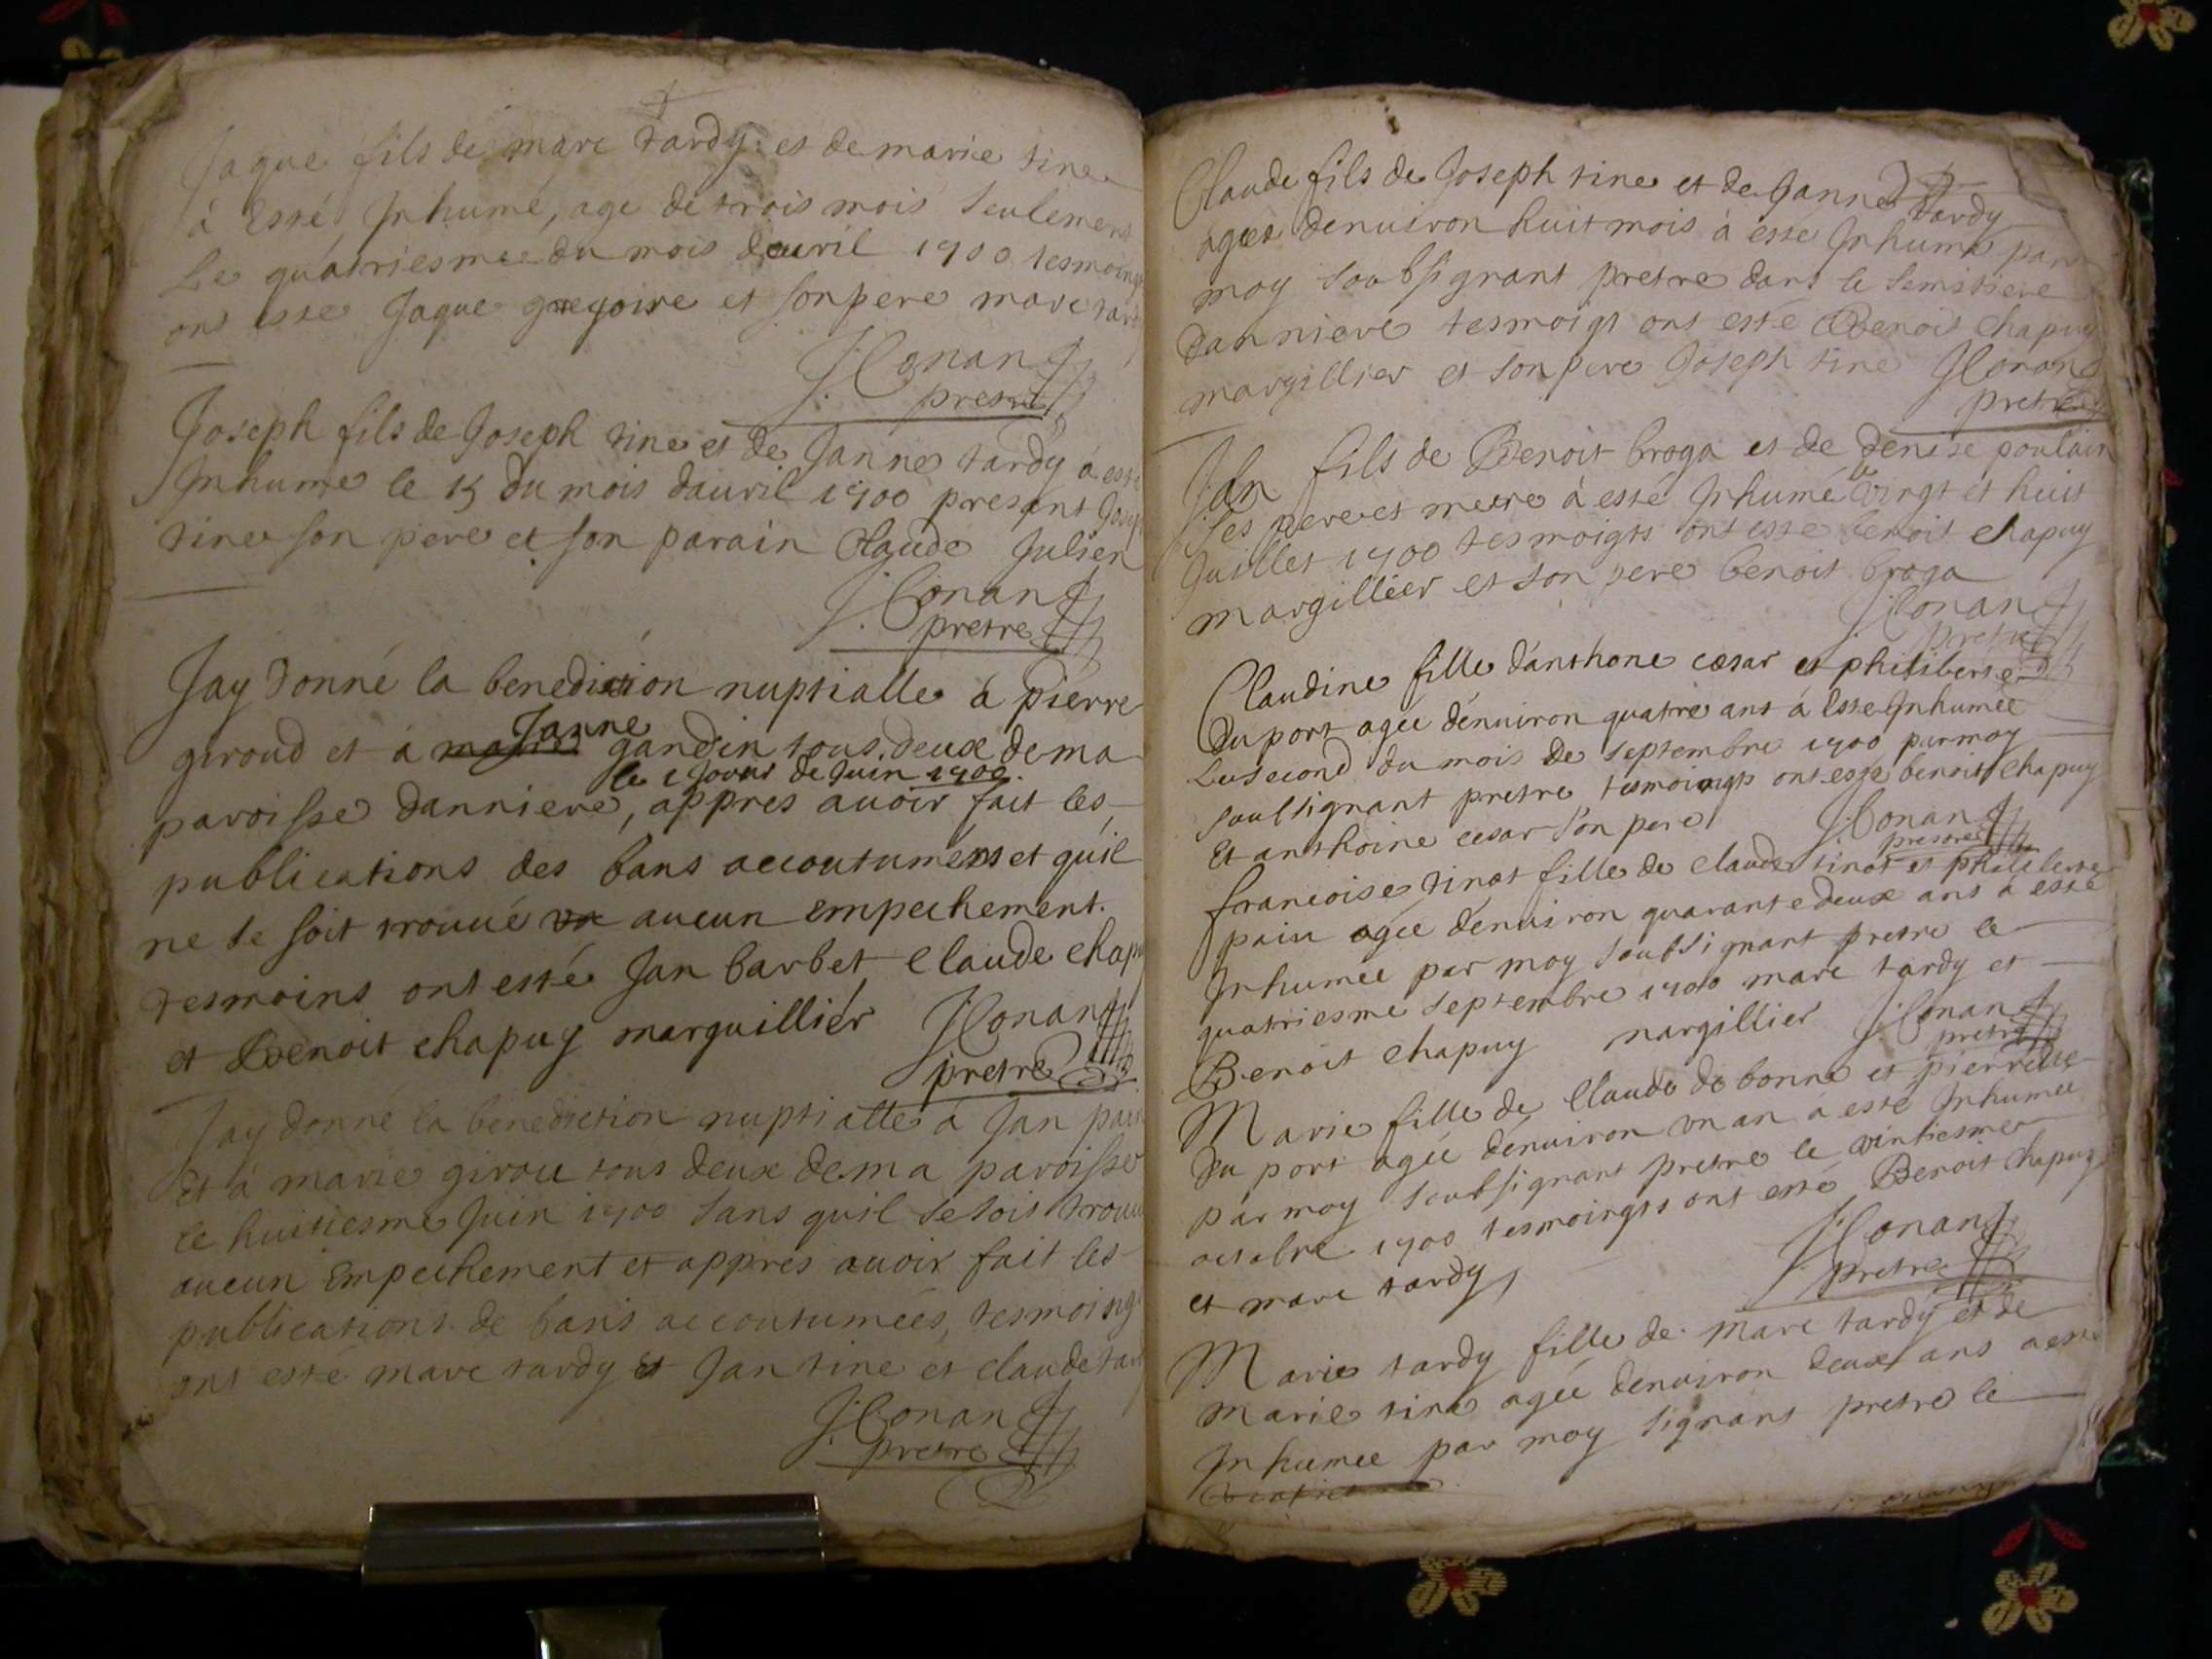 Jaque fils de marc tardy: et de marie tine
à Esté Inhumé, age de trois mois seulement
Le quatriesme du mois dauril 1700 tesmoings
ont esté Jaque gregoire et son pere marc tard
J: Conan
prestre
Joseph fils de Joseph tine et de Janne tardy à esté
Inhumé le 15 du mois dauril 1700 present Josep
tine son pere et son parain Claude Julien
J: Conan
pretre
Jay donné la benediction nuptialle à pierre
giroud et à Janne gandin tous deux de ma
le 1 Jour de Juin 1700.
paroisse danniere, appres auoir fait les
publications des bans accoutumées et quil
ne se soit trouué aucun empechement.
tesmoins ont esté Jan barbet Claude chapu
et Benoit chapuy marguillier J: Conan
pretre
Jay donné la benediction nuptialle à Jan pain
Et à marie girou tous deux de ma paroisse
le huitiesme Juin 1700 sans quil se soit trouué
aucun Empechement et appres auoir fait les
publications de bans accoutumées, tesmoings
ont esté marc tardy et Jan tine et claude tard
J: Conan
pretre
Claude fils de Joseph tine et de Janne tardy
agee denuiron huit mois à esté Inhumé par
moy soubsignant pretre dans le semitiere
danniere tesmoigs ont esté Benoit chapuy
margillier et son pere Joseph tine J: Conan
pretre
Jan fils de Benoit braga et de denise poulain
ses pere et mere à esté Inhumé le vingt et huit
Juillet 1700 tesmoigts ont esté benoit chapuy
margillier et son pere benoit braga
J: Conan
pretre
Claudine fille danthone cæsar et philiberte
Duport agée denuiron quatre ans à Esté Inhumée
Le second du mois de septembre 1700 par moy
soubsignant pretre tesmoings ont esté benoit chapuy
Et anthoine cesar son pere J: Conan
prestre
francoise tinot fille de claude tinot et philiberte
pain agée denuiron quarante deux ans à esté
Inhumée par moy soubsignant pretre le
quatriesme septembre 1700 marc tardy et
Benoit chapuy margillier J: Conan
pretre
Marie fille de Claude de bonne et pierrette
Du port agée denuiron vn an à esté Inhumée
par moy soubsignant pretre le vintiesme
octobre 1700 tesmoingts ont esté Benoit chapuy
et marc tardy, J: Conan
pretre
Marie tardy fille de marc tardy et de
marie tine agée denuiron deux ans à esté
Inhumée par moy signant pretre le